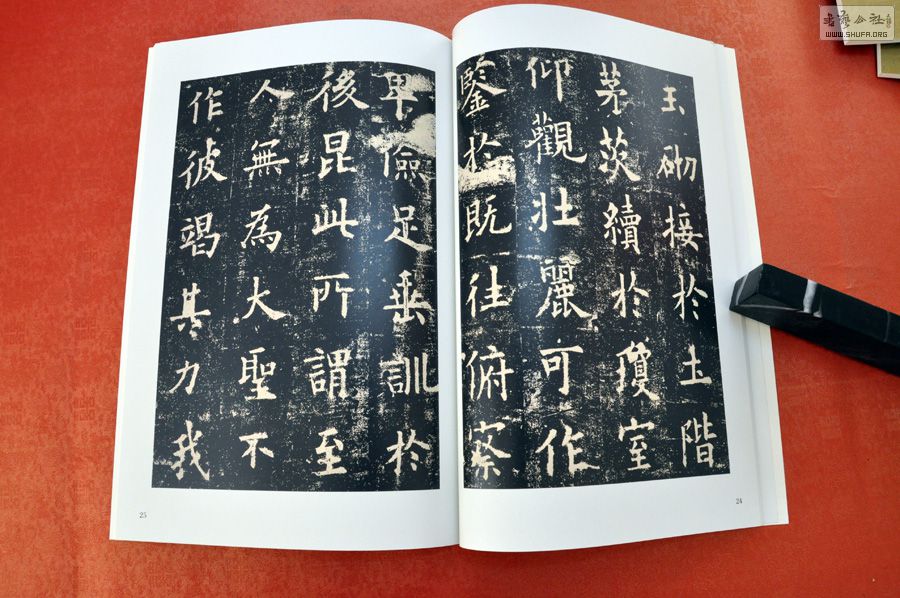 玉砌接於土階
茅茨續於瓊室
仰觀壯麗可作
鑒於既往俯察
卑儉足垂訓於
後昆此所謂至
人無為大聖不
作彼竭其力我
24
25
WWW.SHUFA.ORG